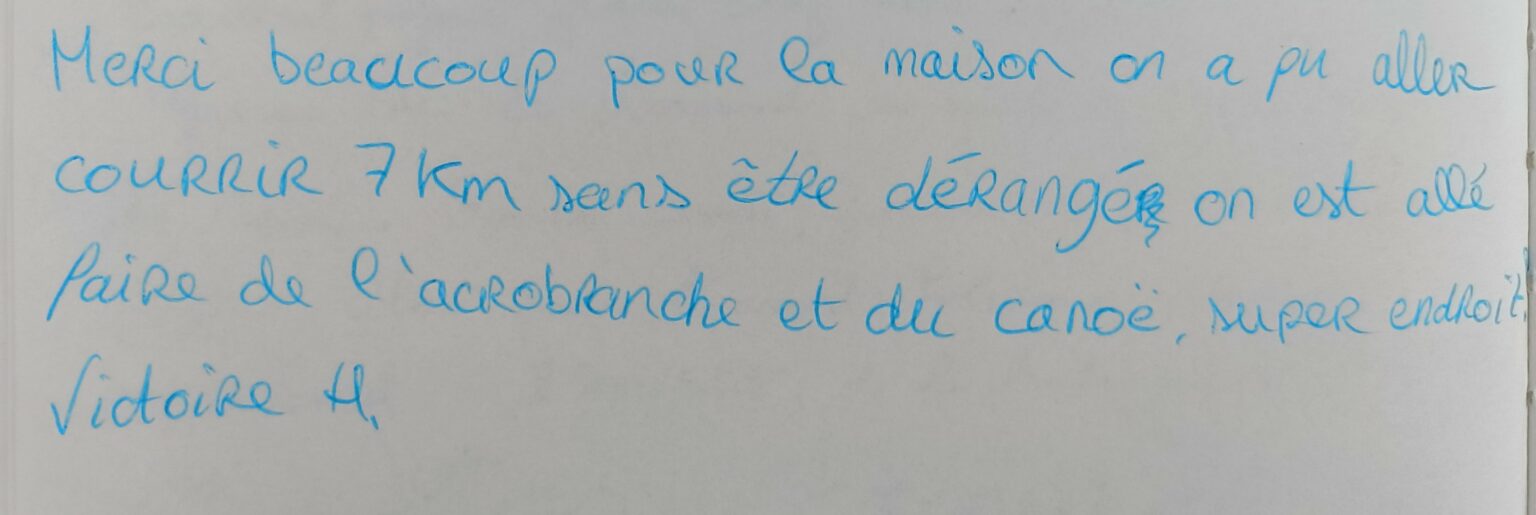 Merci beaucoup pour la maison on a pu aller
courrir 7 km sans être dérangé on est allé
faire de l'acrobranche et du canoë, super endroit!
Victoire H.